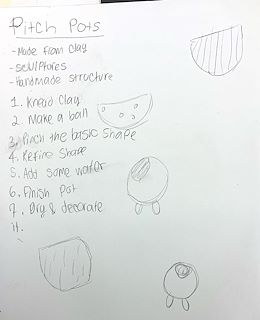 Pitch Pots
- Made from clay
- sculptures
- Handmade structure
1. Knead Clay
2. Make a ball
3. Pinch the basic shape
4. Refine Shape
5. Add some water
6. Finish Pot
7. Dry & decorate